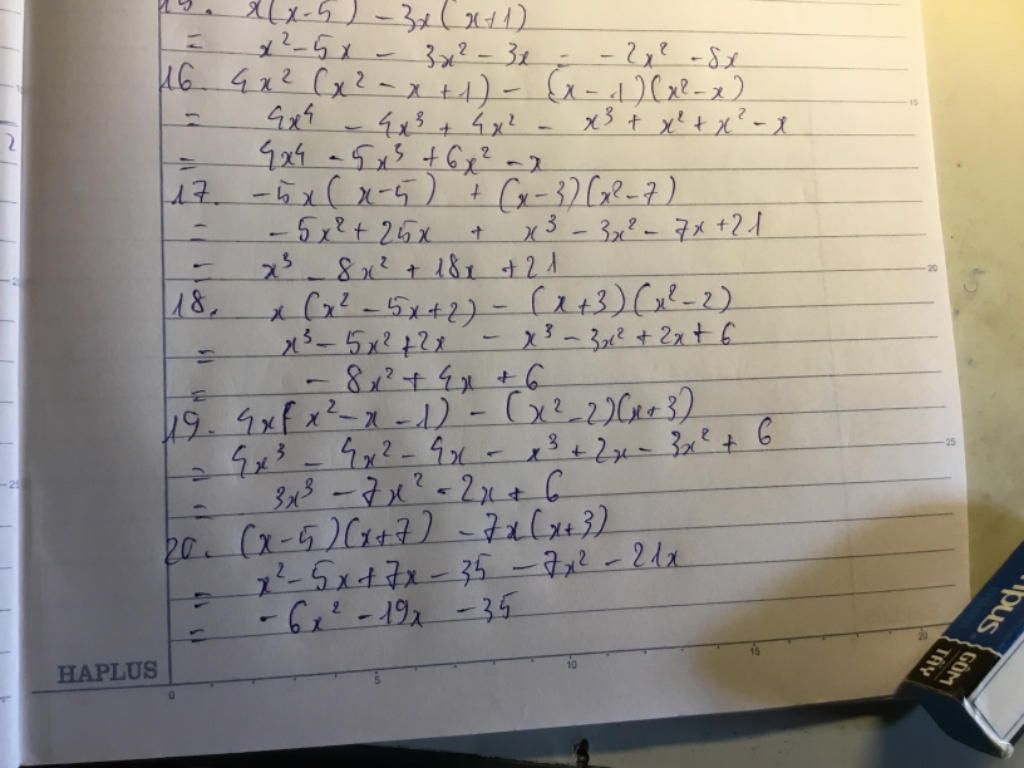 15. x(x-5) - 3x(x+1)
= x² - 5x - 3x² - 3x = -2x² - 8x
16. 4x² (x² - x + 1) - (x - 1)(x² - x)
= 4x⁴ - 4x³ + 4x² - x³ + x² + x² - x
= 4x⁴ - 5x³ + 6x² - x
17. -5x(x-5) + (x-3)(x²-7)
= -5x² + 25x + x³ - 3x² - 7x + 21
= x³ - 8x² + 18x + 21
18. x(x² - 5x + 2) - (x+3)(x²-2)
= x³ - 5x² + 2x - x³ - 3x² + 2x + 6
= - 8x² + 4x + 6
19. 4x(x² - x - 1) - (x² - 2)(x+3)
= 4x³ - 4x² - 4x - x³ + 2x - 3x² + 6
= 3x³ - 7x² - 2x + 6
20. (x-5)(x+7) - 7x(x+3)
= x² - 5x + 7x - 35 - 7x² - 21x
= -6x² - 19x - 35
HAPLUS
0 5 10 15 20
15
20
25
GÔM TẨY